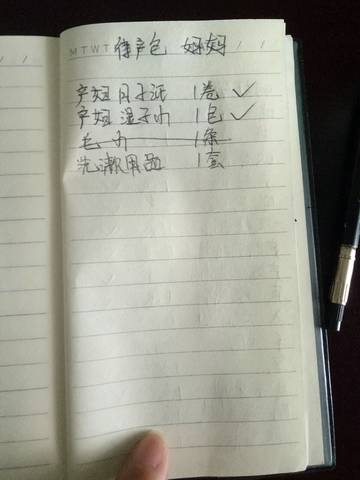 MTWT 待产包 妈妈 / /
产妇 月子纸 1卷 ✓
产妇 湿子巾 1包 ✓
毛巾 1条
洗漱用品 1套
/ /